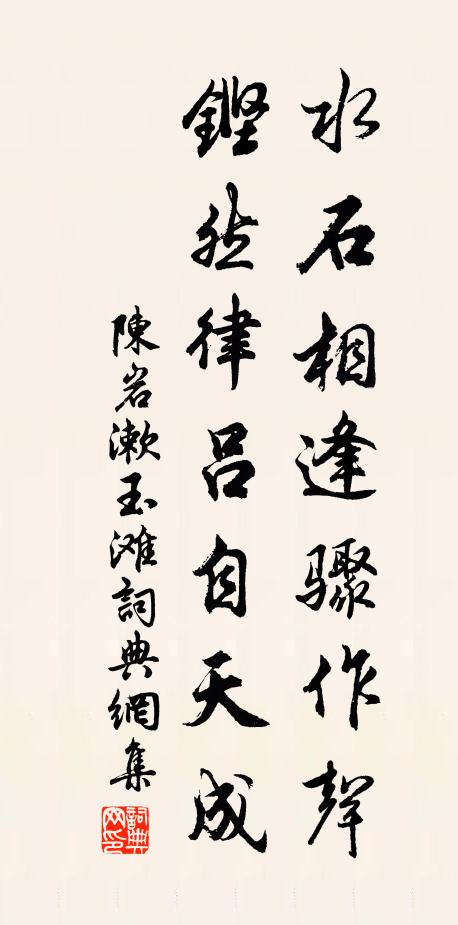 水石相逢驟作聲
鏗然律呂自天成
陳岩漱玉滩詞典網集
詞典网印